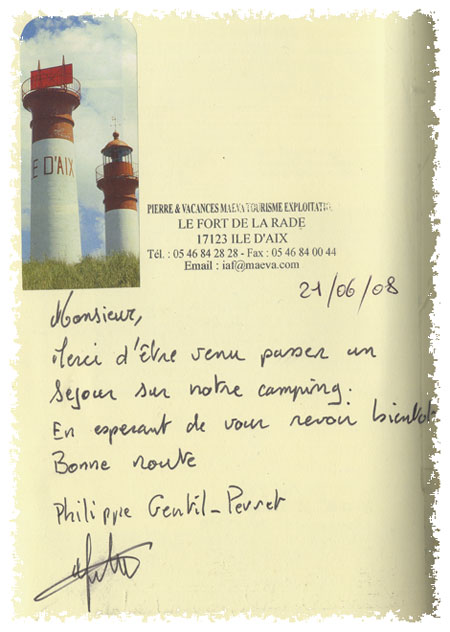 E D'AIX
PIERRE & VACANCES MAEVA TOURISME EXPLOITATI
LE FORT DE LA RADE
17123 ILE D'AIX
Tél. : 05 46 84 28 28 - Fax : 05 46 84 00 44
Email : iaf@maeva.com
21/06/08
Monsieur,
Merci d'Être venu passer un
Sejour sur notre camping.
En esperant de vour revoir bientot
Bonne route
Philippe Gentil-Perret